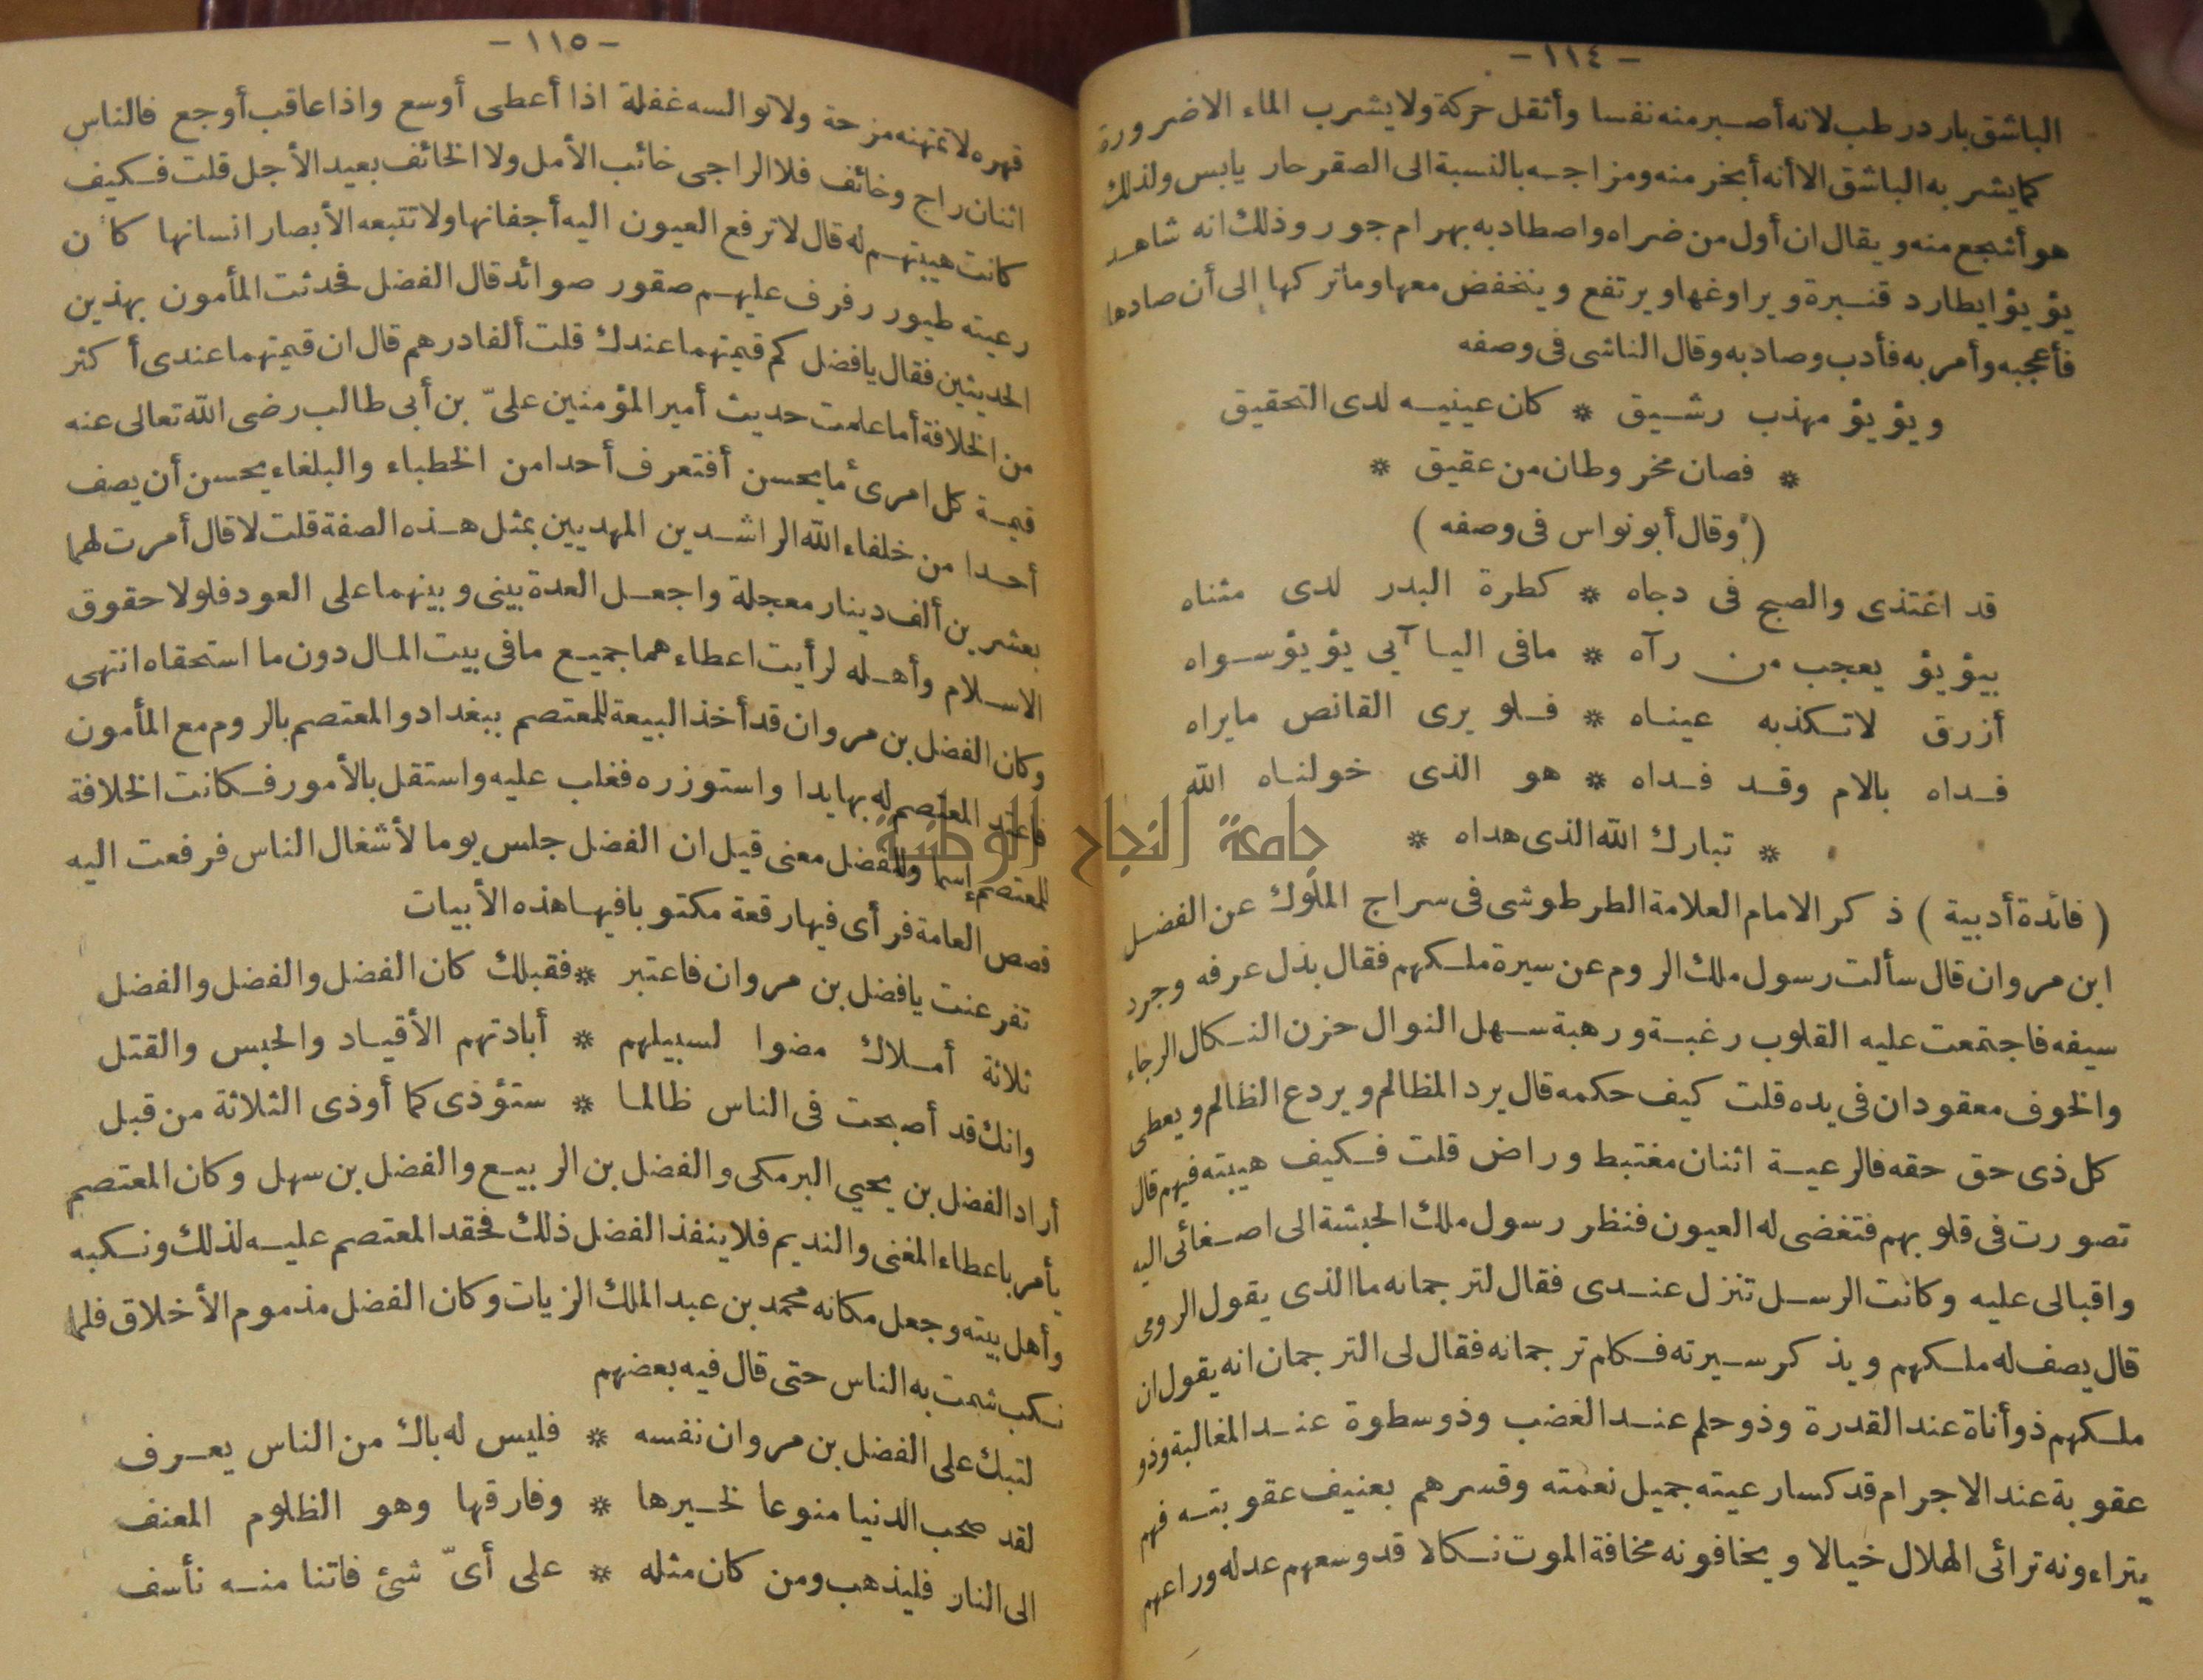 - ١١٤ -
الباشق بارد رطب لانه أصبر منه نفسا وأثقل حركة ولا يشرب الماء الا ضرورة
كما يشربه الباشق الا أنه أبخر منه ومزاجه بالنسبة الى الصقر حار يابس ولذلك
هو أشجع منه ويقال ان أول من ضراه واصطاد به بهرام جور وذلك انه شاهد
يؤيؤا يطارد قنبرة ويراوغها ويرتفع وينخفض معها وما تركها الى أن صادها
فأعجبه وأمر به فأدب وصاد به وقال الناشى فى وصفه
ويؤيؤ مهذب رشيق * كان عينيه لدى التحقيق
* فصان مخروطان من عقيق *
(وقال أبو نواس فى وصفه)
قد اغتذى والصبح فى دجاه * كطرة البدر لدى مثناه
بيؤيؤ يعجب من رآه * مافى اليآ آبى يؤيؤ سواه
أزرق لا تكذبه عيناه * فلو يرى القانص ما يراه
فداه بالام وقد فداه * هو الذى خولناه الله
* تبارك الله الذى هداه *
(فائدة أدبية) ذكر الامام العلامة الطرطوشى فى سراج الملوك عن الفضل
ابن مروان قال سألت رسول ملك الروم عن سيرة ملكهم فقال بذل عرفه وجرد
سيفه فاجتمعت عليه القلوب رغبة ورهبة سهل النوال حزن النكال الرجاء
والخوف معقودان فى يده قلت كيف حكمه قال يرد المظالم ويردع الظالم ويعطى
كل ذى حق حقه فالرعية اثنان مغتبط وراض قلت فكيف هيبته فيهم قال
تصورت فى قلوبهم فتغضى له العيون فنظر رسول ملك الحبشة الى اصغائى اليه
واقبالى عليه وكانت الرسل تنزل عندى فقال لترجمانه ما الذى يقول الرومى
قال يصف له ملكهم ويذكر سيرته فكلم ترجمانه فقال لى الترجمان انه يقول ان
ملكهم ذو أناة عند القدرة وذو حلم عند الغضب وذو سطوة عند المغالبة وذو
عقوبة عند الاجرام قد كسا رعيته جميل نعمته وقسرهم بعنيف عقوبته فهم
يتراءونه ترائى الهلال خيالا ويخافونه مخافة الموت نكالا قد وسعهم عدله وراعهم
- ١١٥ -
قهره لا تمتهنه مزحة ولا توالسه غفلة اذا أعطى أوسع واذا عاقب أوجع فالناس
اثنان راج وخائف فلا الراجى خائب الأمل ولا الخائف بعيد الأجل قلت فكيف
كانت هيبتهم له قال لا ترفع العيون اليه أجفانها ولا تتبعه الأبصار انسانها كأن
رعيته طيور رفرف عليهم صقور صوائد قال الفضل فحدثت المأمون بهذين
الحديثين فقال يا فضل كم قيمتهما عندك قلت ألفا درهم قال ان قيمتهما عندى أكثر
من الخلافة أما علمت حديث أمير المؤمنين علىّ بن أبى طالب رضى الله تعالى عنه
قيمة كل امرئ ما يحسن أفتعرف أحدا من الخطباء والبلغاء يحسن أن يصف
أحدا من خلفاء الله الراشدين المهديين بمثل هذه الصفة قلت لا قال أمرت لهما
بعشرين ألف دينار معجلة واجعل العدة بينى وبينهما على العود فلولا حقوق
الاسلام وأهله لرأيت اعطاءهما جميع مافى بيت المال دون ما استحقاه انتهى
وكان الفضل بن مروان قد أخذ البيعة للمعتصم ببغداد والمعتصم بالروم مع المأمون
فاعتد المعتصم له بها يدا واستوزره فغلب عليه واستقل بالأمور فكانت الخلافة
للمعتصم إسما وللفضل معنى قيل ان الفضل جلس يوما لأشغال الناس فرفعت اليه
قصص العامة فرأى فيها رقعة مكتوبا فيها هذه الأبيات
تفرعنت يا فضل بن مروان فاعتبر * فقبلك كان الفضل والفضل والفضل
ثلاثة أملاك مضوا لسبيلهم * أبادتهم الأقياد والحبس والقتل
وانك قد أصبحت فى الناس ظالما * ستؤذى كما أوذى الثلاثة من قبل
أراد الفضل بن يحيي البرمكى والفضل بن الربيع والفضل بن سهل وكان المعتصم
يأمر باعطاء المغنى والنديم فلا ينفذ الفضل ذلك فحقد المعتصم عليه لذلك ونكبه
وأهل بيته وجعل مكانه محمد بن عبد الملك الزيات وكان الفضل مذموم الأخلاق فلما
نكب شمت به الناس حتى قال فيه بعضهم
لتبك على الفضل بن مروان نفسه * فليس له باك من الناس يعرف
لقد صحب الدنيا منوعا لخيرها * وفارقها وهو الظلوم المعنف
الى النار فليذهب ومن كان مثله * على أىّ شئ فاتنا منه نأسف
جامعة النجاح الوطنية